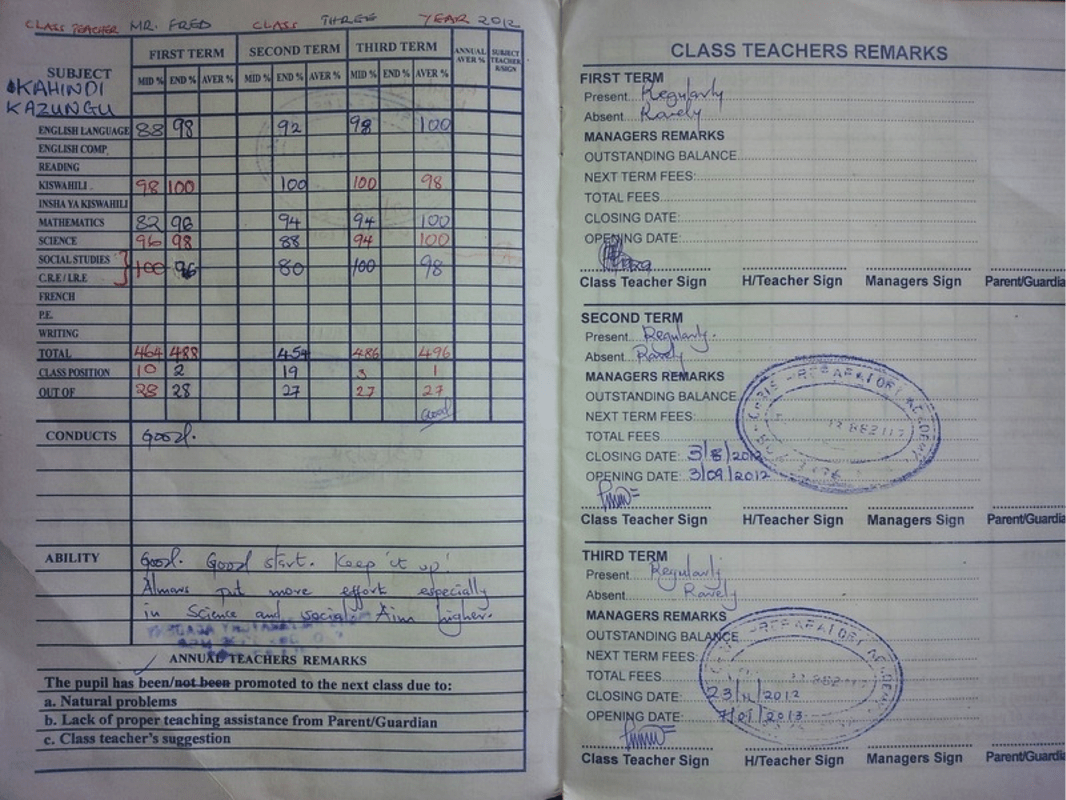 CLASS TEACHER MR. FRED CLASS THREE YEAR 2012
SUBJECT FIRST TERM SECOND TERM THIRD TERM ANNUAL AVER % SUBJECT TEACHER R/SIGN
MID % END % AVER % MID % END % AVER % MID % END % AVER %
KAHINDI
KAZUNGU
ENGLISH LANGUAGE 88 98 92 98 100
ENGLISH COMP.
READING
KISWAHILI . 98 100 100 100 98
INSHA YA KISWAHILI
MATHEMATICS 82 96 94 94 100
SCIENCE 96 98 88 94 100
SOCIAL STUDIES
C.R.E / I.R.E 100 96 80 100 98
FRENCH
P.E.
WRITING
TOTAL 464 488 454 486 496
CLASS POSITION 10 2 19 3 1
OUT OF 28 28 27 27 27
Good
CONDUCTS Good.
ABILITY Good. Good start. Keep it up!
Always put more effort especially
in Science and social. Aim higher.
ANNUAL TEACHERS REMARKS
The pupil has been/not been promoted to the next class due to:
a. Natural problems
b. Lack of proper teaching assistance from Parent/Guardian
c. Class teacher's suggestion
CLASS TEACHERS REMARKS
FIRST TERM
Present Regularly
Absent Rarely
MANAGERS REMARKS
OUTSTANDING BALANCE
NEXT TERM FEES:
TOTAL FEES
CLOSING DATE:
OPENING DATE:
Class Teacher Sign H/Teacher Sign Managers Sign Parent/Guardia
SECOND TERM
Present Regularly.
Absent Rarely
MANAGERS REMARKS
OUTSTANDING BALANCE
NEXT TERM FEES:
TOTAL FEES
CLOSING DATE: 3/8/2012
OPENING DATE: 3/09/2012
Class Teacher Sign H/Teacher Sign Managers Sign Parent/Guardia
PREPARATORY ACADEMY
THIRD TERM
Present Regularly
Absent Rarely
MANAGERS REMARKS
OUTSTANDING BALANCE
NEXT TERM FEES:
TOTAL FEES
CLOSING DATE: 23/11/2012
OPENING DATE: 7/01/2013
Class Teacher Sign H/Teacher Sign Managers Sign Parent/Guardia
PREPARATORY ACADEMY